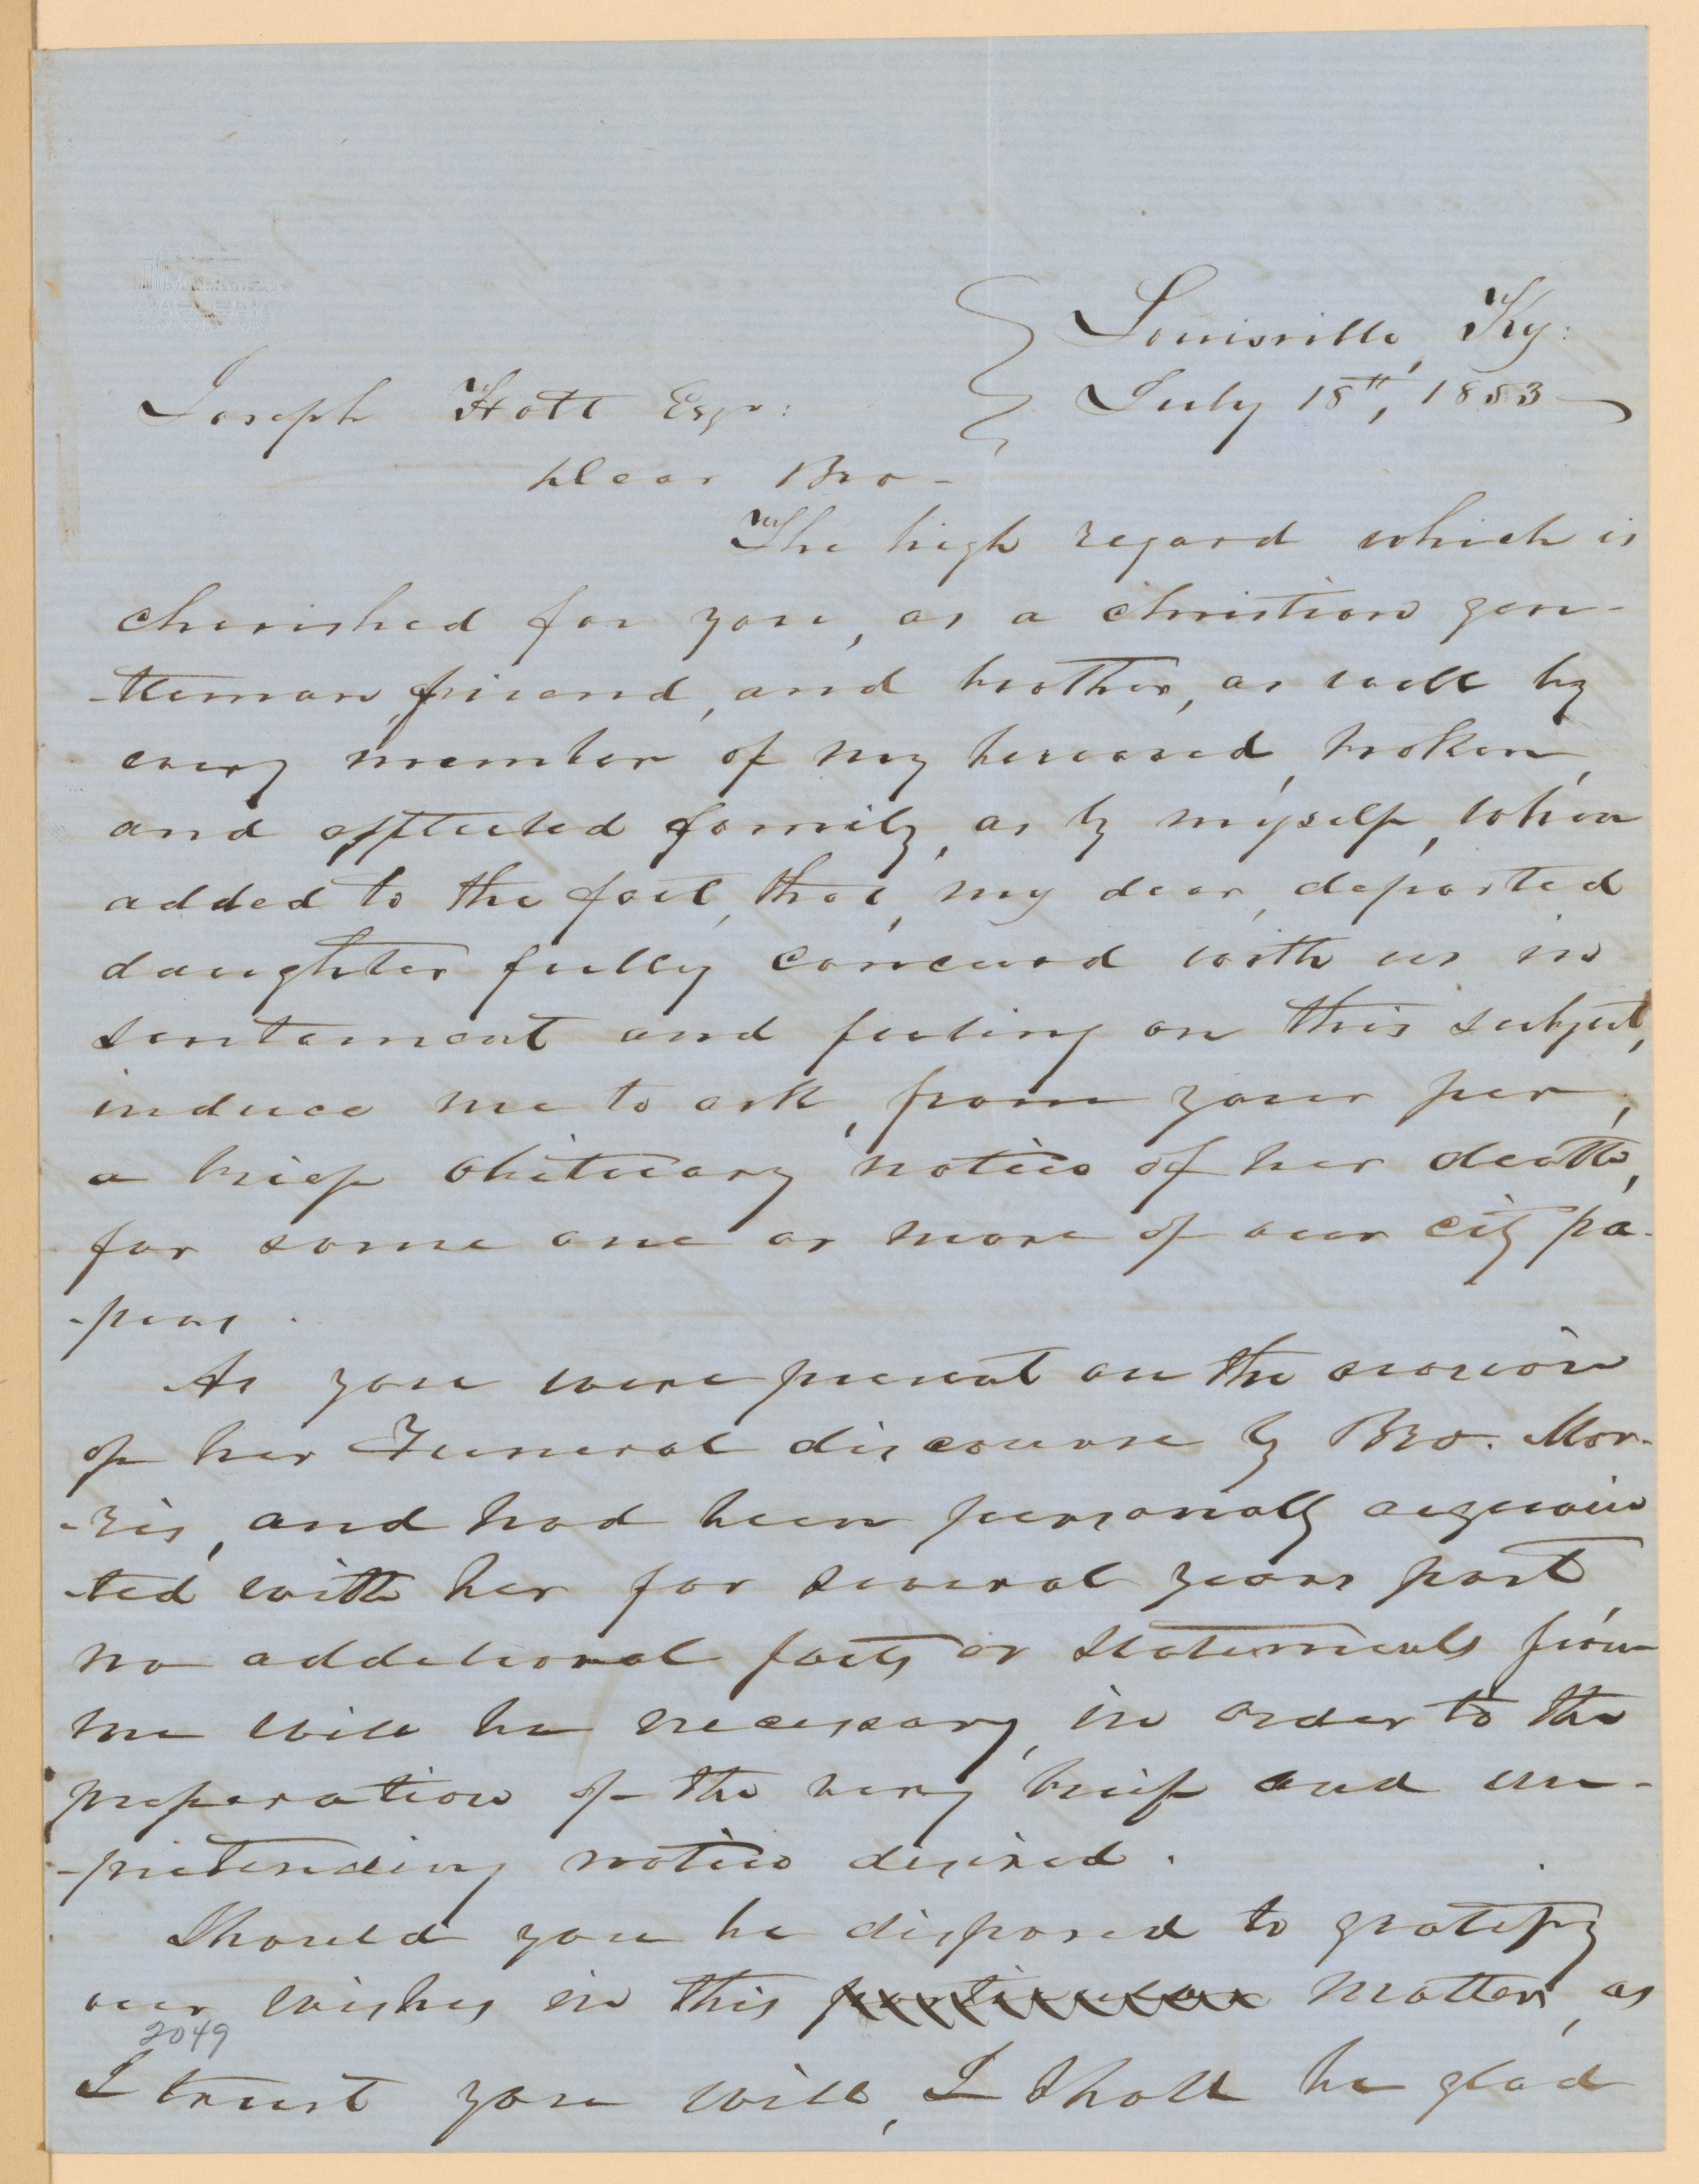 Louisville, Ky:
July 18th, 1853
Joseph Holt Esqr:
Dear Bro-
The high regard which is
cherished for you, as a christian gen-
-tleman, friend, and brother, as well by
every member of my bereaved, broken,
and afflicted family, as by myself, when
added to the fact, that, my dear, departed
daughter fully concurred with us in
sentament and feeling on this subject,
induce me to ask, from your pen,
a brief obituary notice of her death,
for some one or more of our city pa-
-pers.
As you were present on the occasion
of her Funeral discourse by Bro. Mor-
-ris, and had been personally acquain
-ted with her for several years past,
no additional facts or statements from
me will be necessary, in order to the
preparation of the very brief and un-
-pretending notice desired.
Should you be disposed to gratify
our wishes in this particular matter, as
2049
I trust you will, I shall be glad